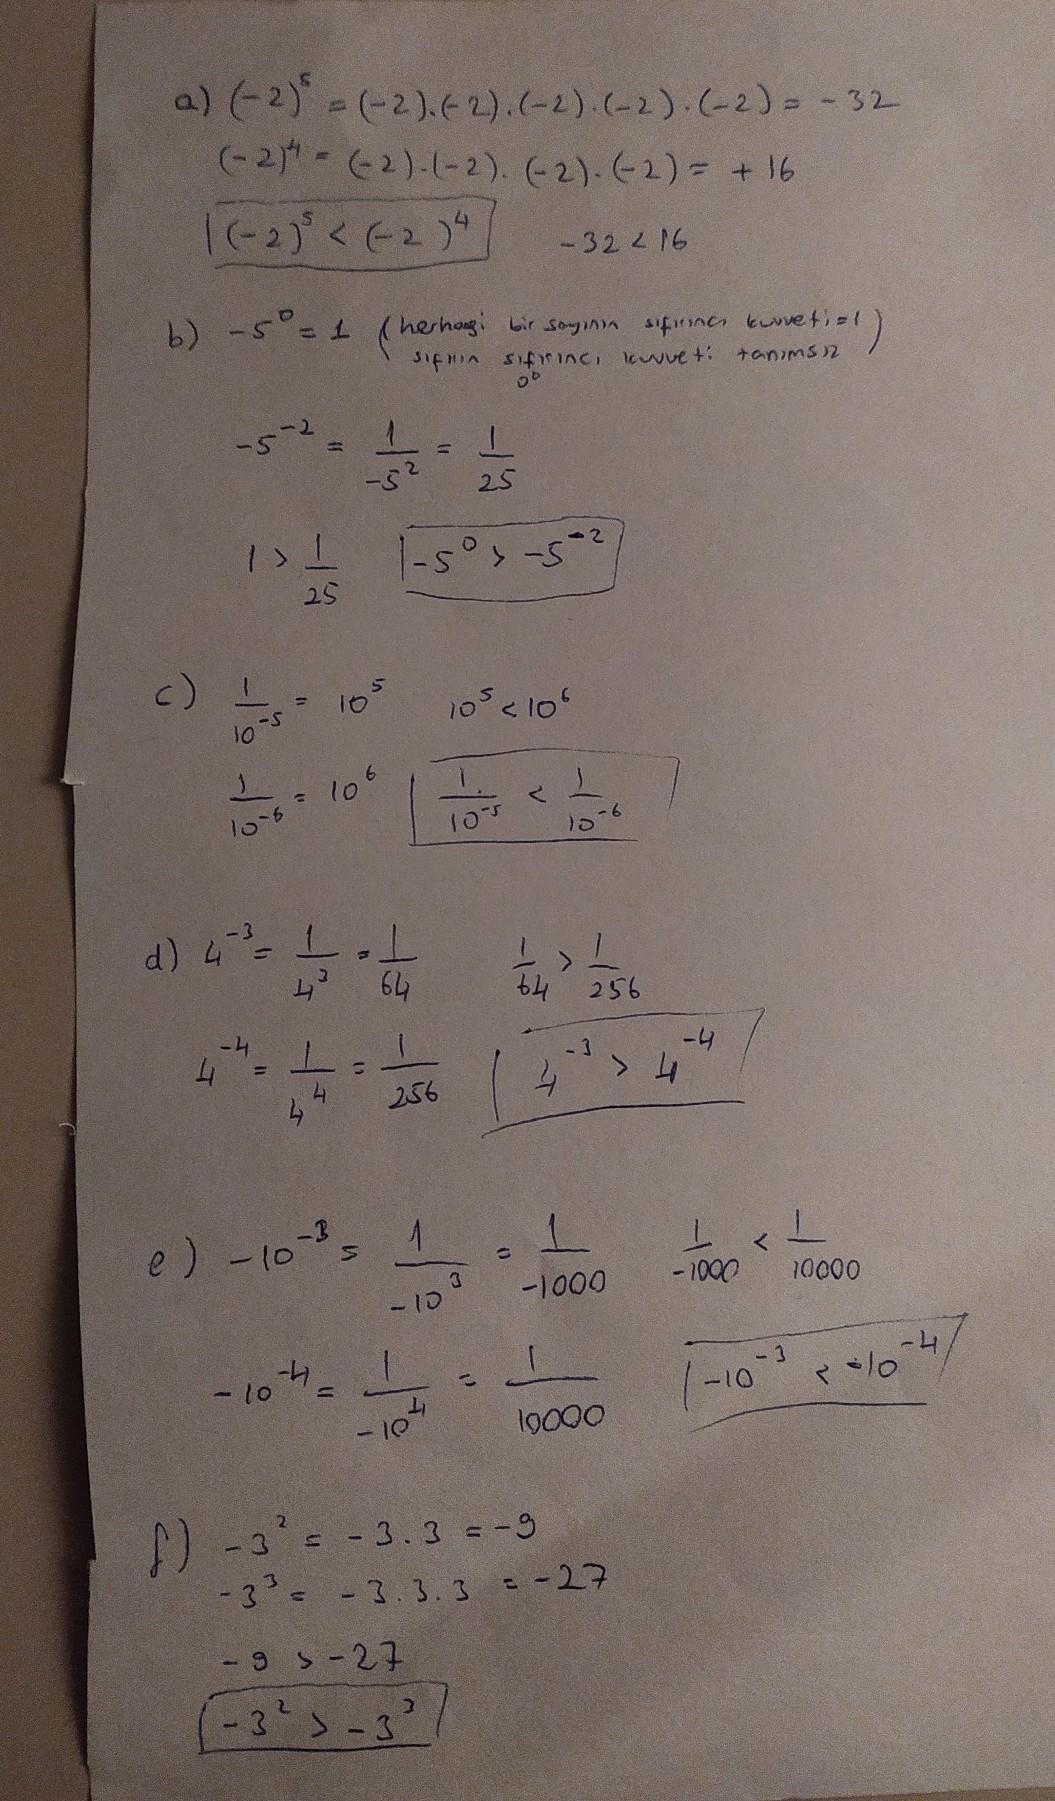 a) (-2)⁵ = (-2).(-2).(-2).(-2).(-2) = -32
(-2)⁴ = (-2).(-2).(-2).(-2) = +16
(-2)⁵ < (-2)⁴ -32 < 16
b) -5⁰ = 1 (herhangi bir sayının sıfırıncı kuvveti = 1
sıfırın sıfırıncı kuvveti tanımsız)
0⁰
-5⁻² = 1/-5² = 1/25
1 > 1/25 -5⁰ > -5⁻²
c) 1/10⁻⁵ = 10⁵ 10⁵ < 10⁶
1/10⁻⁶ = 10⁶ 1/10⁻⁵ < 1/10⁻⁶
d) 4⁻³ = 1/4³ = 1/64 1/64 > 1/256
4⁻⁴ = 1/4⁴ = 1/256 4⁻³ > 4⁻⁴
e) -10⁻³ = 1/-10³ = 1/-1000 1/-1000 < 1/10000
-10⁻⁴ = 1/-10⁴ = 1/10000 -10⁻³ < -10⁻⁴
f) -3² = -3.3 = -9
-3³ = -3.3.3 = -27
-9 > -27
-3² > -3³